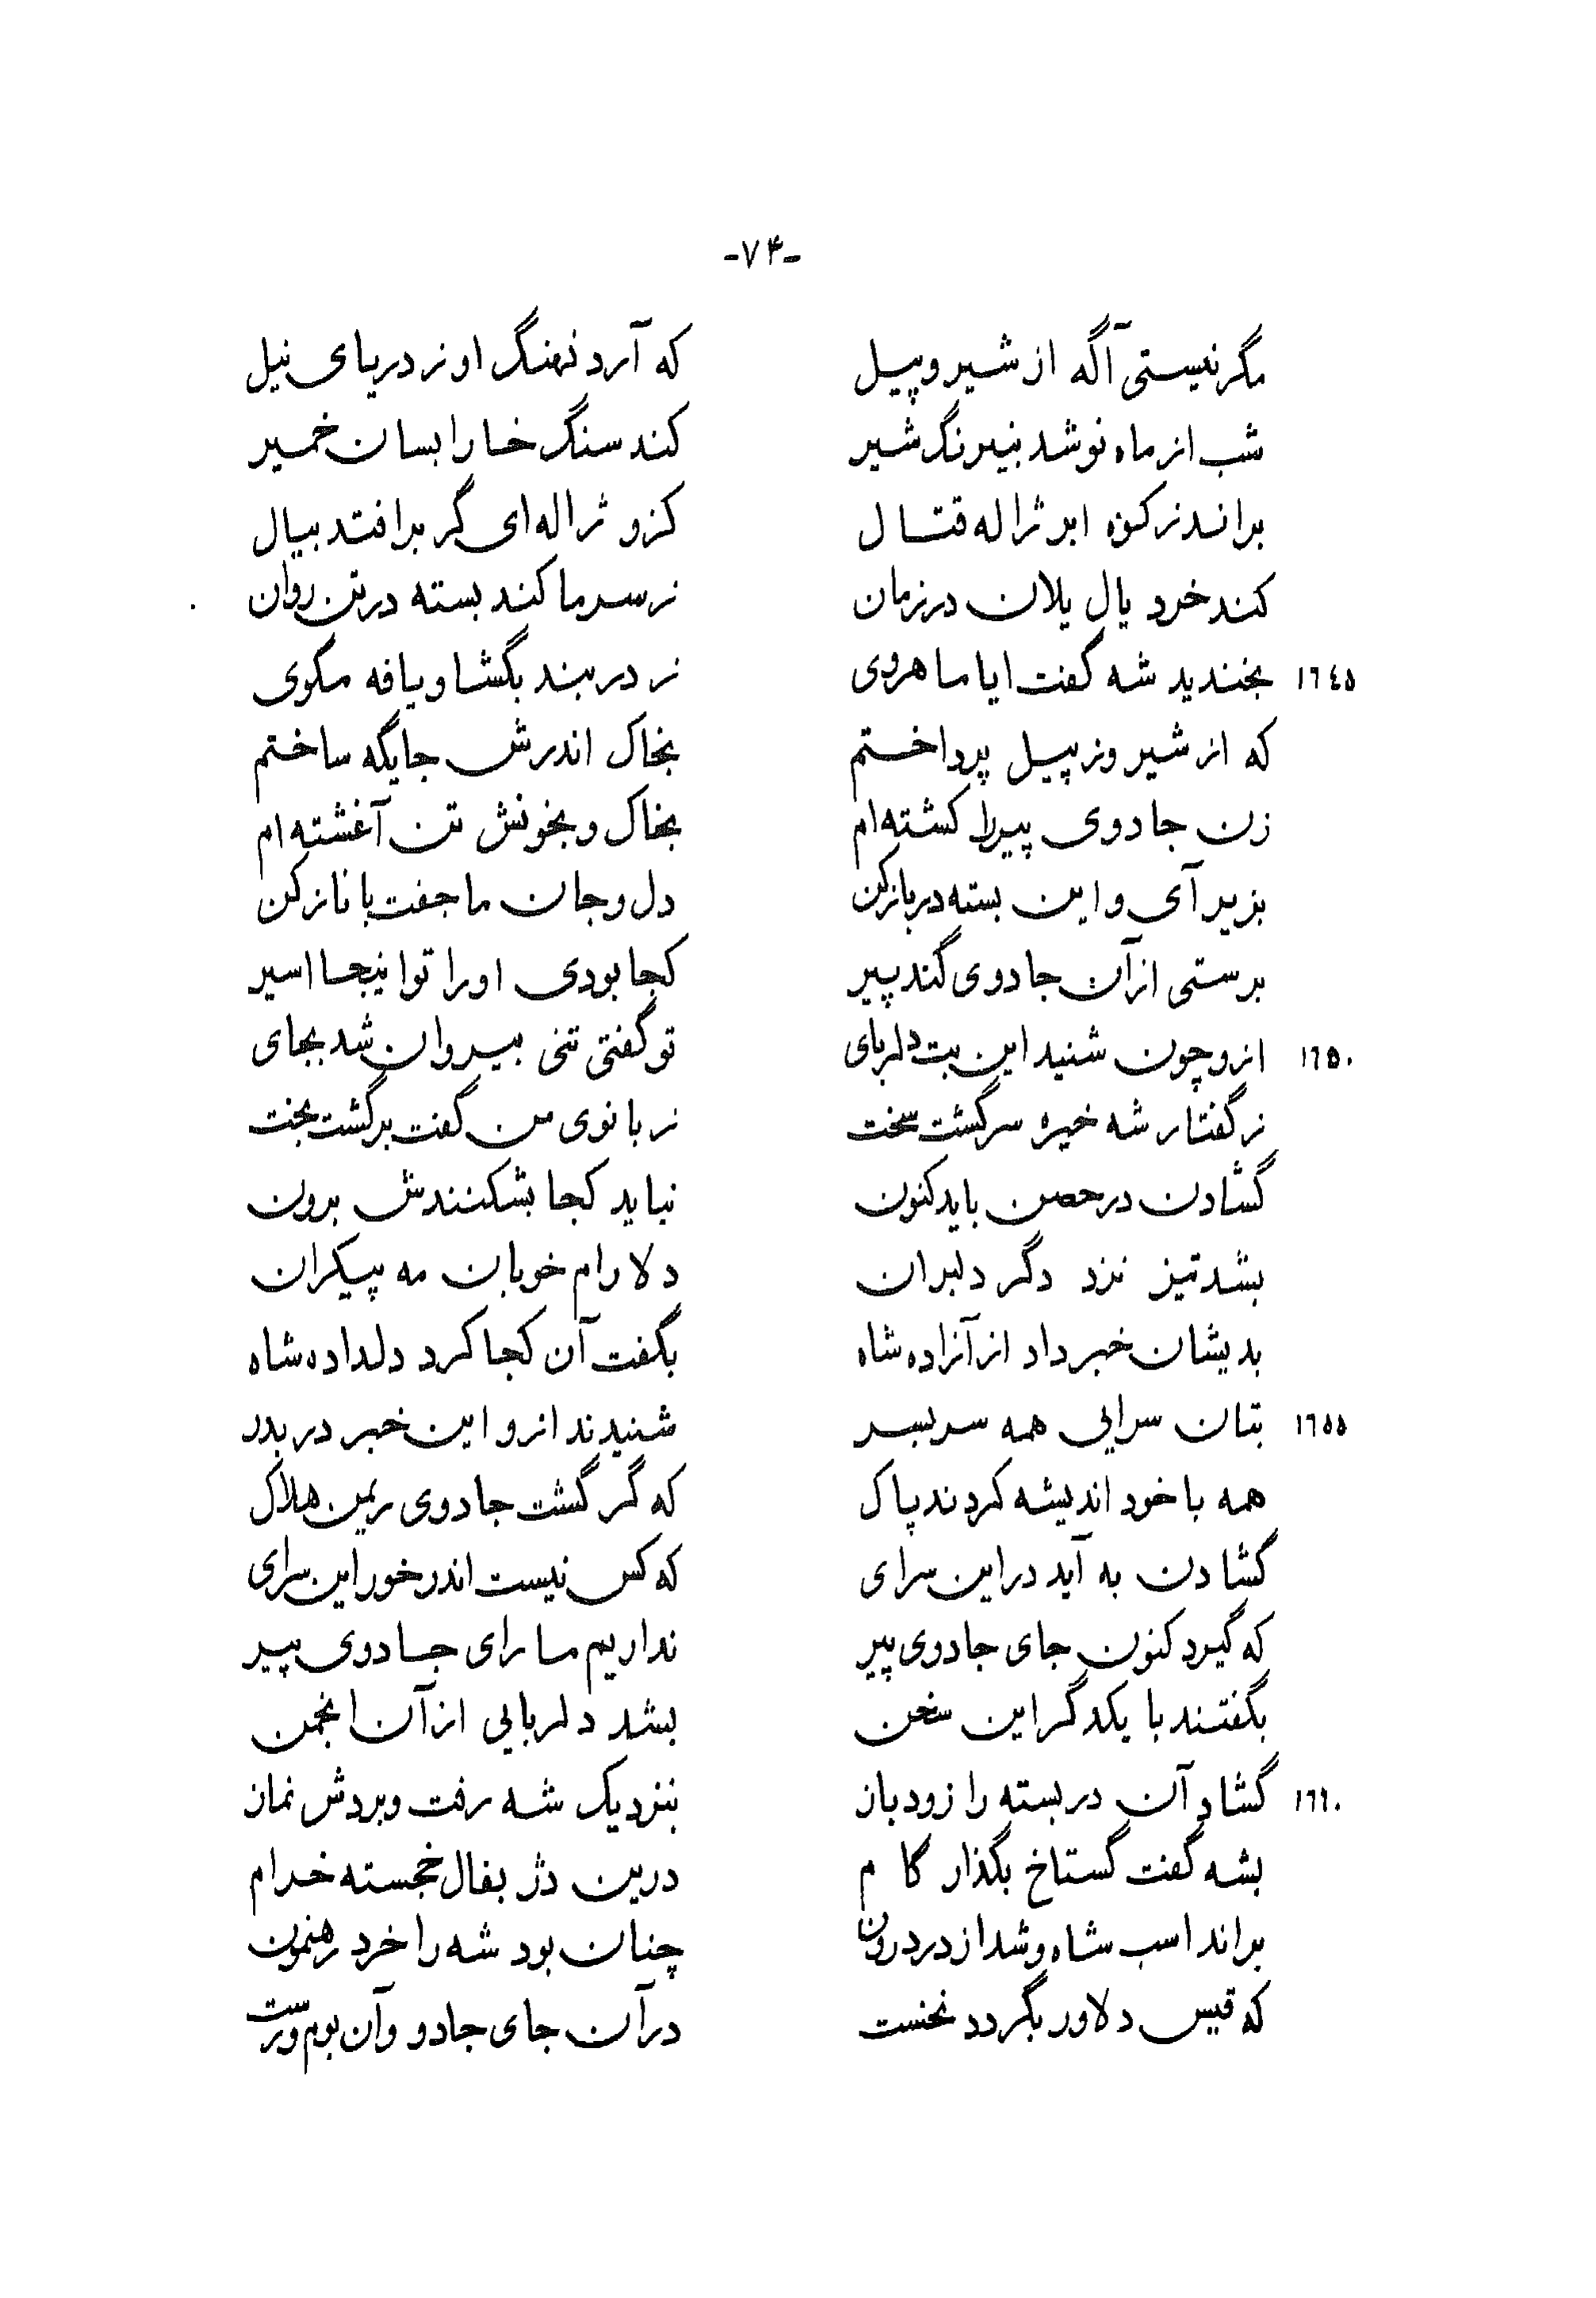 -۷۴-
مگر نیستی آگه از شیر و پیل که آرد نهنگ او ز دریای نیل
شب از ماه نو شد بنیرنگ شیر کند سنگ خارا بسان خمیر
براند ز کوه ابر ژاله قتال کزو ژاله‌ای گر برافتد بیال
کند خرد یال یلان در زمان ز سرما کند بسته در تن روان
۱٦٤۵ بخندید شه گفت ایا ماهروی ز در بند بگشا و یافه مگوی
که از شیر وز پیل پرداختم بخاک اندرش جایگه ساختم
زن جادوی پیر را کشته‌ام بخاک و بخونش تن آغشته‌ام
بزیر آی و این بسته در باز کن دل و جان ما جفت با ناز کن
برستی از آن جادوی گنده پیر کجا بودی او را تو اینجا اسیر
۱٦۵۰ ازو چون شنید این بت دلربای تو گفتی تنی بیروان شد بجای
ز گفتار شه خیره سر گشت سخت ز بانوی من گفت برگشت بخت
گشادن در حصن باید کنون نباید کجا بشکنندش برون
بشد تیز نزد دگر دلبران دلارام خوبان مه پیکران
بدیشان خبر داد از آزاده شاه بگفت آن کجا کرد دلداده شاه
۱٦۵۵ بتان سرایی همه سربسر شنیدند ازو این خبر در بدر
همه با خود اندیشه کردند پاک که گر گشت جادوی ریمن هلاک
گشادن به آید در این سرای که کس نیست اندر خور این سرای
که گیرد کنون جای جادوی پیر نداریم ما رای جادوی پیر
بگفتند با یکدگر این سخن بشد دلربایی از آن انجمن
۱٦٦۰ گشاد آن در بسته را زود باز بنزدیک شه رفت و بردش نماز
بشه گفت گستاخ بگذار گام درین دژ بفال خجسته خرام
براند اسب شاه و شد از در درون چنان بود شه را خرد رهنمون
که قیس دلاور بگردد نخست در آن جای جادو و آن بوم و رست